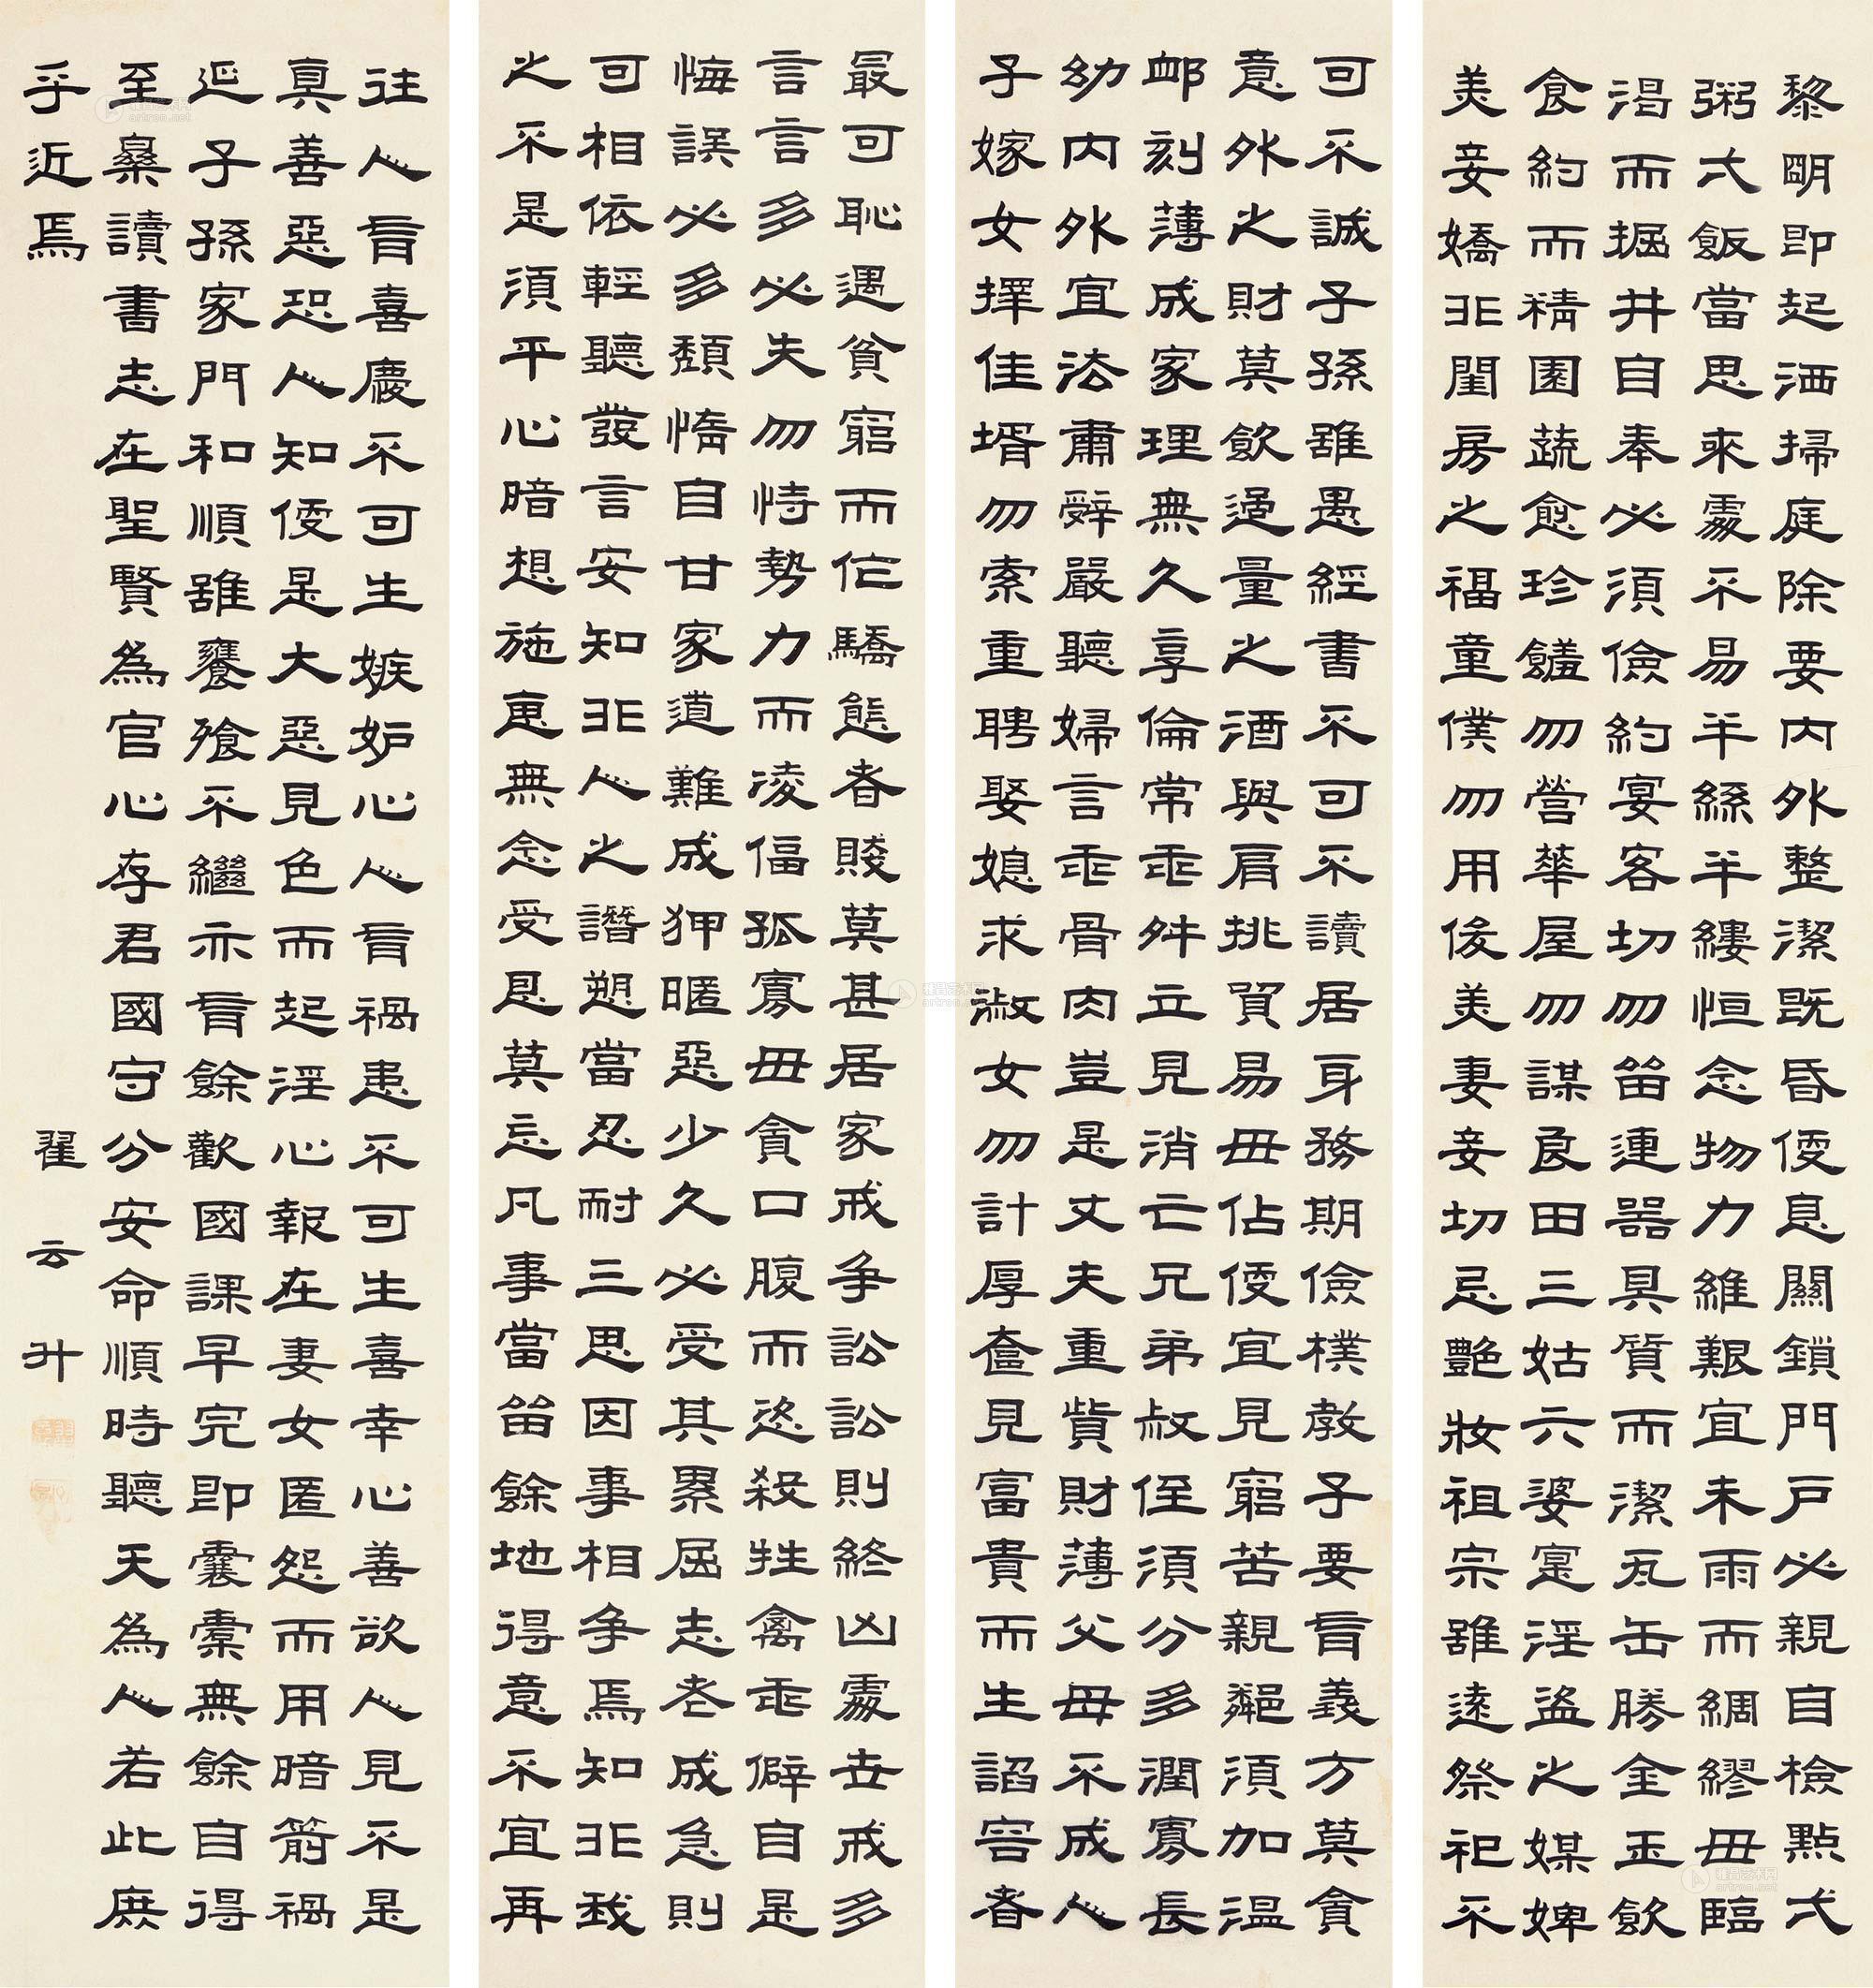 黎眀即起洒掃庭除要內外整潔既昏便息關鎖門戶必親自檢點弌
粥弌飯當思來處不易半絲半縷恒念物力維艱宜未雨而綢繆毋臨
渴而掘井自奉必須儉約宴客切勿留連器具質而潔瓦缶勝金玉飲
食約而精園蔬愈珍饈勿營華屋勿謀良田三姑六婆寔淫盜之媒婢
美妾嬌非閨房之福童僕勿用俊美妻妾切忌艷妝祖宗雖遠祭祀不
可不誠子孫雖愚經書不可不讀居身務期儉樸教子要有義方莫貪
意外之財莫飲過量之酒與肩挑貿易毋佔便宜見窮苦親鄰須加溫
卹刻薄成家理無久享倫常乖舛立見消亡兄弟叔侄須分多潤寡長
幼內外宜法肅辭嚴聽婦言乖骨肉豈是丈夫重貲財薄父母不成人
子嫁女擇佳壻勿索重聘娶媳求淑女勿計厚奩見富貴而生諂容者
最可恥遇貧窮而作驕態者賤莫甚居家戒爭訟訟則終凶處世戒多
言言多必失勿恃勢力而凌偪孤寡毋貪口腹而恣殺牲禽乖僻自是
悔誤必多頹惰自甘家道難成狎暱惡少久必受其累屈志老成急則
可相依輕聽發言安知非人之譖愬當忍耐三思因事相爭焉知非我
之不是須平心暗想施惠無念受恩莫忘凡事當留餘地得意不宜再
往人有喜慶不可生嫉妒心人有禍患不可生喜幸心善欲人見不是
真善惡恐人知便是大惡見色而起淫心報在妻女匿怨而用暗箭禍
延子孫家門和順雖饔飧不繼亦有餘歡國課早完即囊橐無餘自得
至樂讀書志在聖賢為官心存君國守分安命順時聽天為人若此庶
乎近焉
翟云升